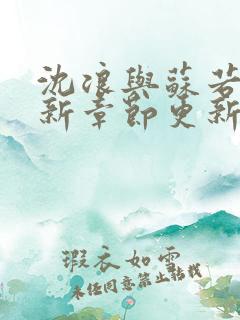 沈浪與蘇若
新章節更新
瑕衣如雲
未经同意禁止转载